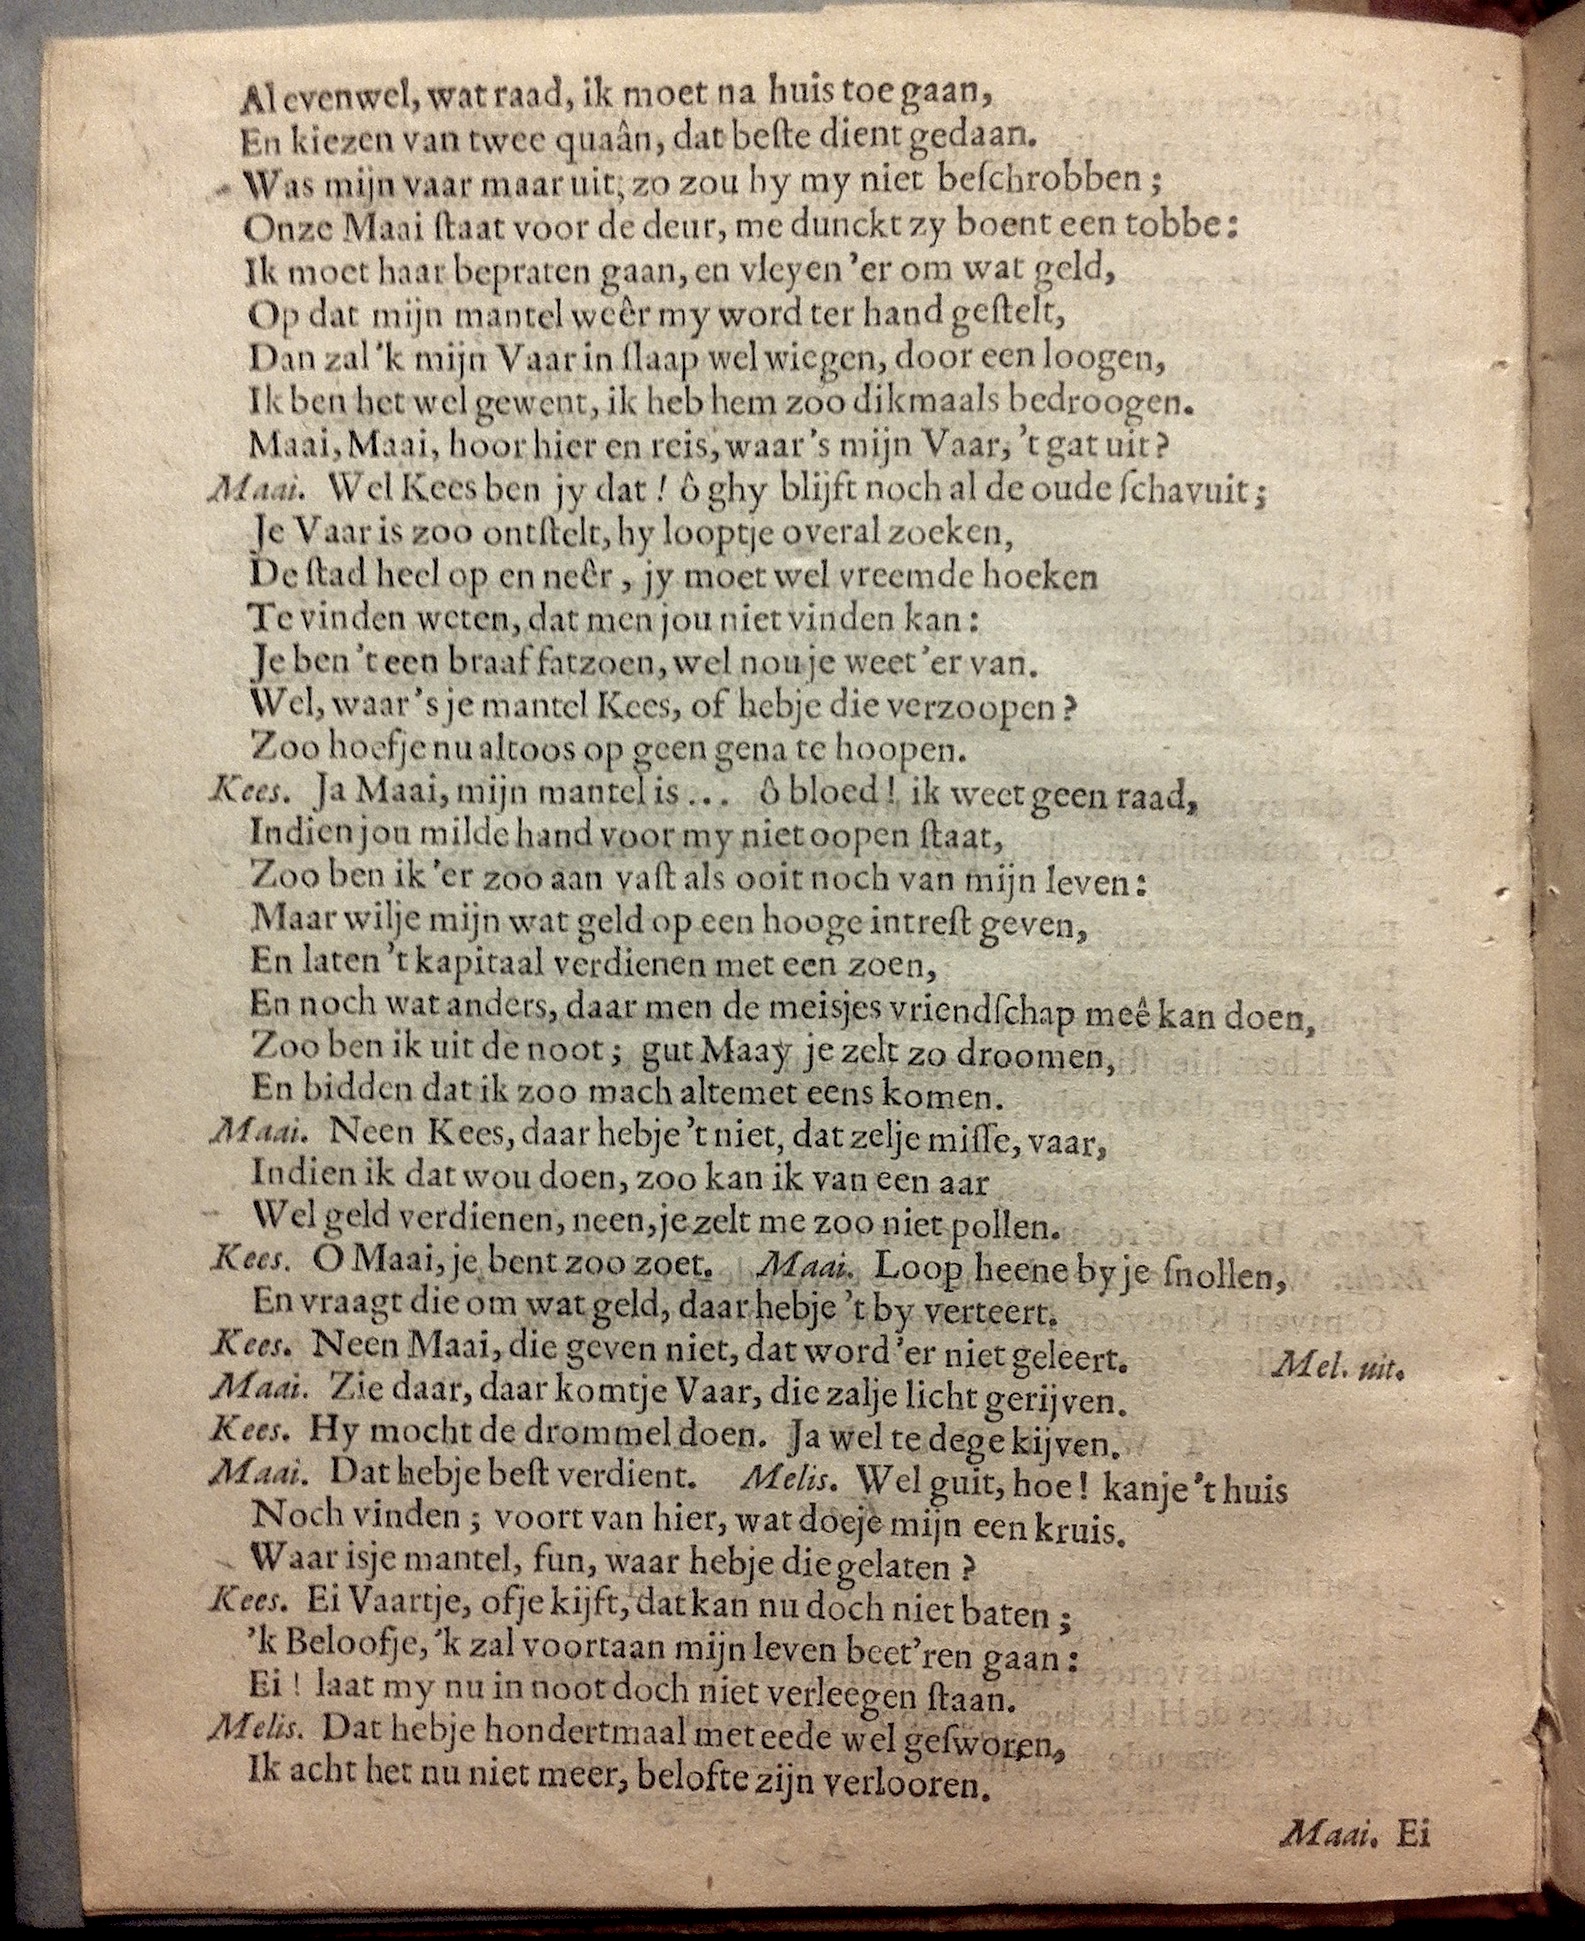 Al evenwel, wat raad, ik moet na huis toe gaan,
En kiezen van twee quaân, dat beſte dient gedaan.
Was mijn vaar maar uit, zo zou hy my niet beſchrobben;
Onze Maai ſtaat voor de deur, me dunckt zy boent een tobbe:
Ik moet haar bepraten gaan, en vleyen 'er om wat geld,
Op dat mijn mantel weêr my word ter hand geſtelt,
Dan zal 'k mijn Vaar in ſlaap wel wiegen, door een loogen,
Ik ben het wel gewent, ik heb hem zoo dikmaals bedroogen.
Maai, Maai, hoor hier en reis, waar's mijn Vaar, 't gat uit?
Maai. Wel Kees ben jy dat! ô ghy blijft noch al de oude ſchavuit;
Je Vaar is zoo ontſtelt, hy looptje overal zoeken,
De ſtad heel op en neêr, jy moet wel vreemde hoeken
Te vinden weten, dat men jou niet vinden kan:
Je ben 't een braaf fatzoen, wel nou je weet 'er van.
Wel, waar's je mantel Kees, of hebje die verzoopen?
Zoo hoefje nu altoos op geen gena te hoopen.
Kees. Ja Maai, mijn mantel is... ô bloed! ik weet geen raad,
Indien jou milde hand voor my niet oopen ſtaat,
Zoo ben ik 'er zoo aan vaſt als ooit noch van mijn leven:
Maar wilje mijn wat geld op een hooge intreſt geven,
En laten 't kapitaal verdienen met een zoen,
En noch wat anders, daar men de meisjes vriendſchap meê kan doen,
Zoo ben ik uit de noot; gut Maaÿ je zelt zo droomen,
En bidden dat ik zoo mach altemet eens komen.
Maai. Neen Kees, daar hebje 't niet, dat zelje miſſe, vaar,
Indien ik dat wou doen, zoo kan ik van een aar
Wel geld verdienen, neen, je zelt me zoo niet pollen.
Kees. O Maai, je bent zoo zoet. Maai. Loop heene by je ſnollen,
En vraagt die om wat geld, daar hebje 't by verteert.
Kees. Neen Maai, die geven niet, dat word 'er niet geleert. Mel. uit.
Maai. Zie daar, daar komtje Vaar, die zalje licht gerijven.
Kees. Hy mocht de drommel doen. Ja wel te dege kijven.
Maai. Dat hebje beſt verdient. Melis. Wel guit, hoe! kanje 't huis
Noch vinden; voort van hier, wat doeje mijn een kruis.
Waar isje mantel, fun, waar hebje die gelaten?
Kees. Ei Vaartje, ofje kijft, dat kan nu doch niet baten;
'k Beloofje, 'k zal voortaan mijn leven beet'ren gaan:
Ei! laat my nu in noot doch niet verleegen ſtaan.
Melis. Dat hebje hondertmaal met eede wel geſworen,
Ik acht het nu niet meer, belofte zijn verlooren.
Maai. Ei